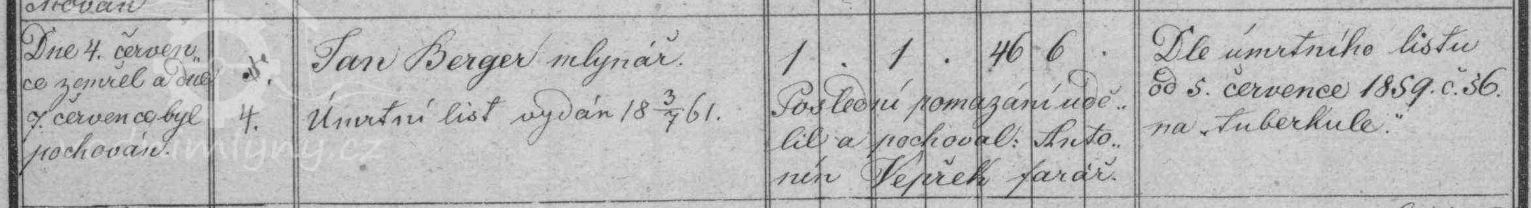 Dne 4. červen„
ce zemřel a dne
7. července byl
pochován.
4.
Jan Berger mlynář.
Úmrtní list vydán 18 3/7 61.
1 . 1 . 46 6 .
Poslední pomazání udě„
lil a pochoval: Anto„
nín Vepřek farář.
Dle úmrtního listu
od 5. července 1859. č. 36.
na „tuberkule.“